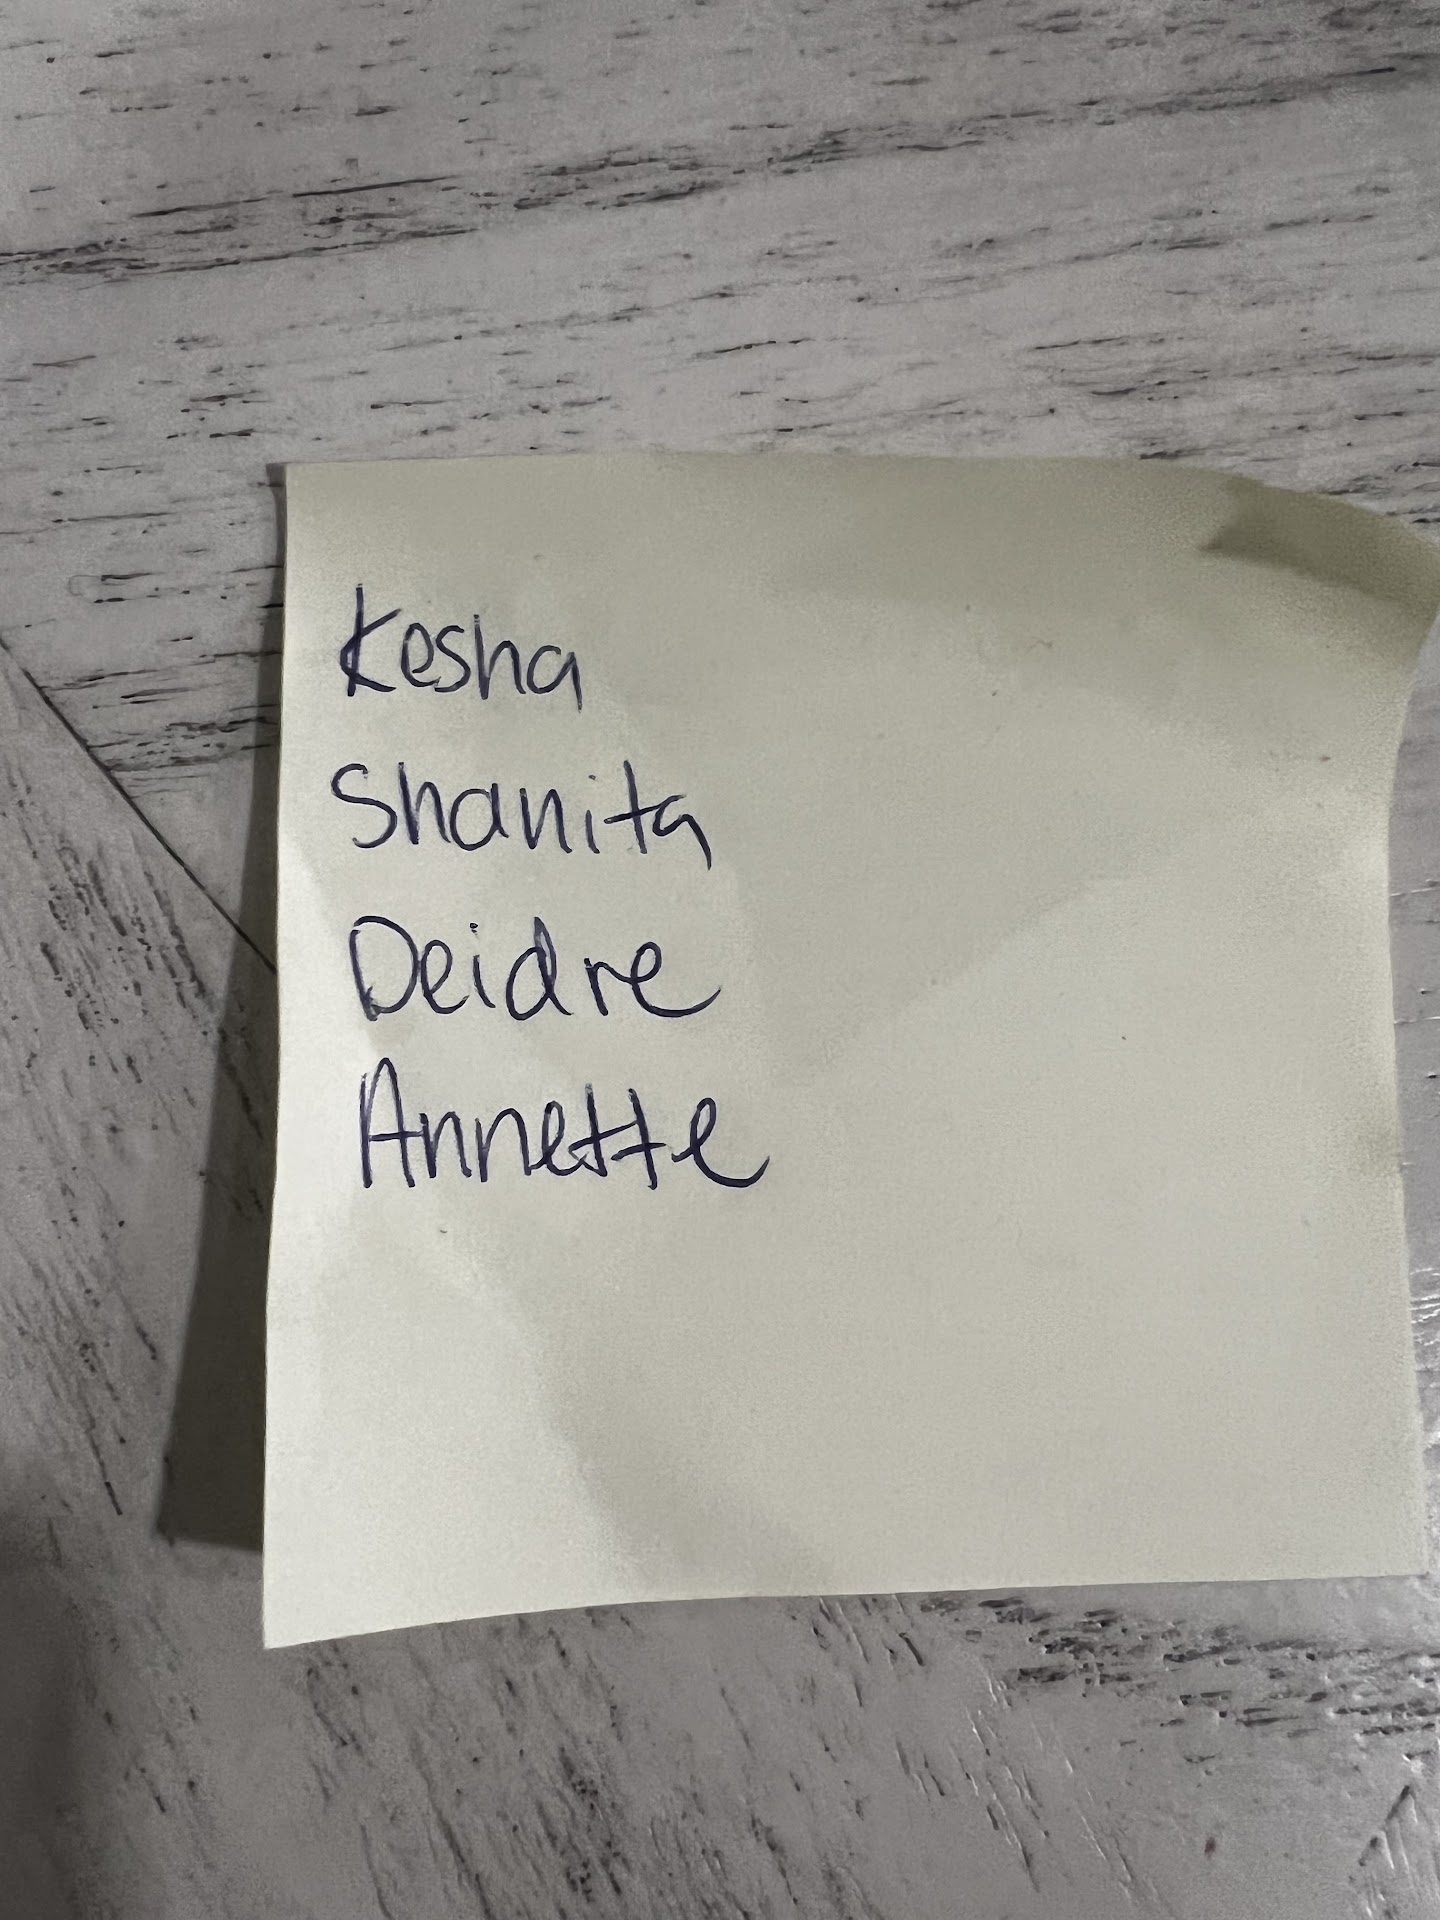 Kesha
Shanita
Deidre
Annette